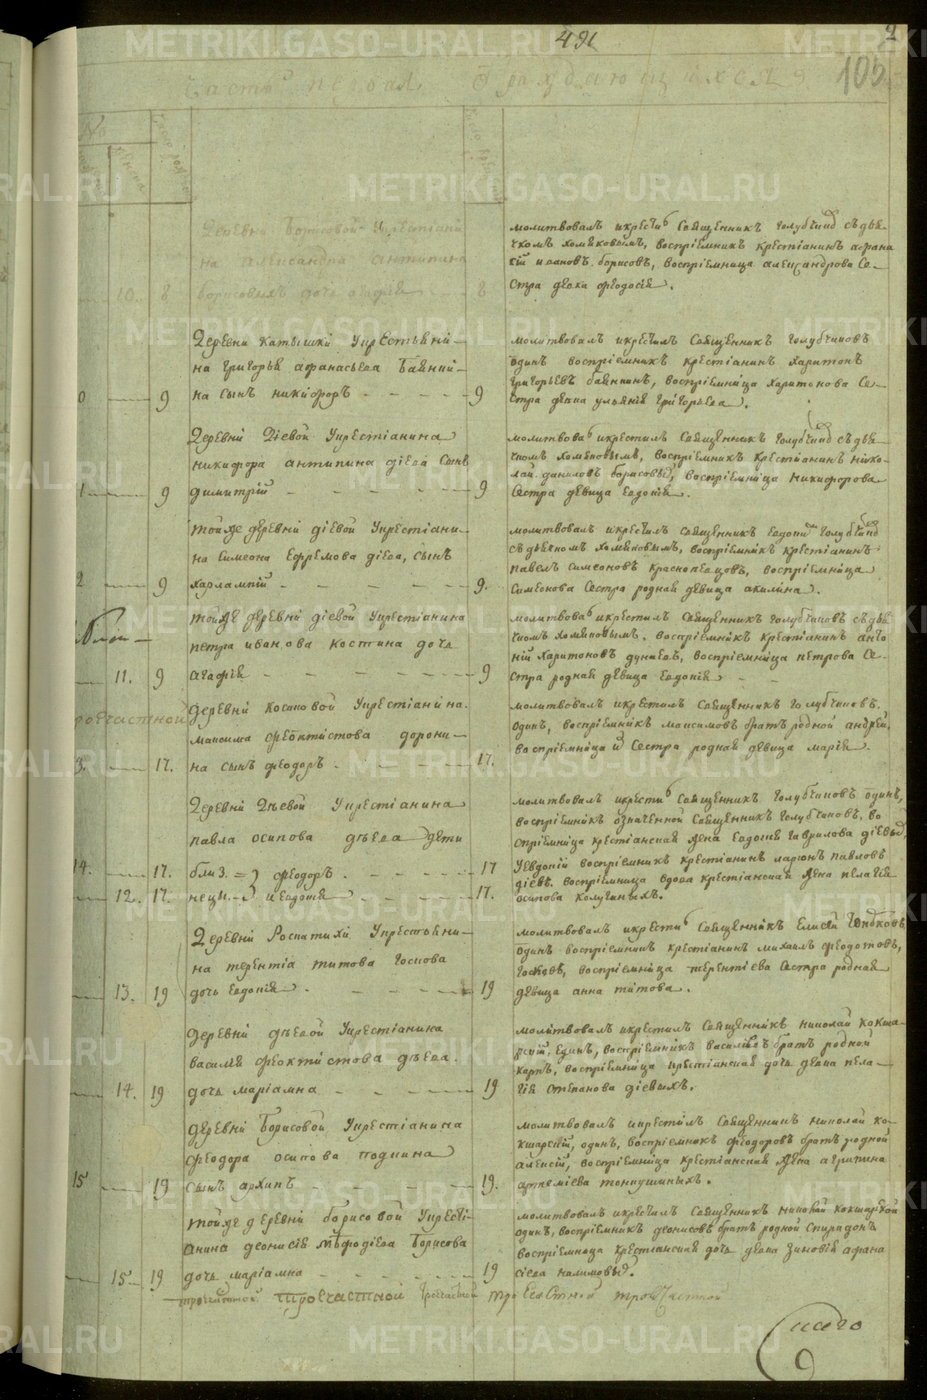 METRIKI.GASO-URAL.RU
491
2
105
Часть первая О раждающихся
No
Деревни Борисовой Укрестьяни
на Александра антипина
10. 8 борисовыхъ дочь агафия 8
молитвовалъ икрестилъ Священникъ Голубчиковъ съ дья-
чкомъ хомяковымъ, воспрiемникъ крестiанинъ афана
сiй ивановъ борисовъ, воспрiемница александрова Се-
стра девка феодосiя.
Деревни катышки Укрестьяни-
на григорья афанасьева Баянин-
9 на сынъ никифоръ 9
молитвовалъ икрестилъ Священникъ Голубчиковъ
одинъ воспрiемникъ крестiанинъ харитонъ
григорьевъ баянинъ, воспрiемница харитонова Се-
стра девка ульянiя григорьева.
Деревни Дiевой Укрестiанина
никифора антипина дiева сынъ
9 димитрiй 9
молитвовалъ икрестилъ Священникъ Голубчиковъ съ дья-
чкомъ хомяковымъ, воспрiемникъ крестiанинъ нико-
лай даниловъ борисовъ, воспрiемница никифорова
Сестра девица Евдокiя.
тойже деревни дiевой Укрестiани-
на Симеона Ефремова дiева, сынъ
2 9 харлампiй 9.
молитвовалъ икрестилъ Священникъ Голубчиковъ
съ дьячкомъ хомяковымъ, воспрiемникъ крестiанинъ
павелъ Симеоновъ красноперцовъ, воспрiемница
Симеонова Сестра родная девица акилина.
тойже деревни дiевой Укрестiанина
петра иванова костина дочь
11. 9 агафiя 9
молитвовалъ икрестилъ Священникъ Голубчиковъ съ дья-
чкомъ хомяковымъ. воспрiемникъ крестiанинъ анто
нiй харитоновъ дунаевъ, воспрiемница петрова Се-
стра родная девица Евдокiя
деревни косиковой Укрестiанина.
максима феоктистова дорони-
3. 17. на сынъ феодоръ 17.
молитвовалъ икрестилъ Священникъ Голубчиковъ.
одинъ, воспрiемникъ максимовъ братъ родной андрей,
воспрiемница и Сестра родная девица марiя
Деревни Дѣевой Укрестiанина
павла осипова дѣева дети
14. 17. близ. = феодоръ 17
12. 17. нецы и Евдокiя 17.
молитвовалъ икрестилъ Священникъ Голубчиковъ одинъ,
воспрiемникъ означенной Священникъ Голубчиковъ. во
спрiемница крестiанская жена Евдокiя гаврилова дiевыхъ
Уевдокiи воспрiемникъ крестiанинъ ларiонъ павловъ
дiевъ. воспрiемница вдова крестiанская жена пелагiя
осипова калугиныхъ.
Деревни Роспатихи Укрестьяни-
на терентiа титова госкова
13. 19 дочь Евдокiя 19
молитвовалъ икрестилъ Священникъ Елисей
одинъ воспрiемникъ крестiанинъ михаилъ феодотовъ,
госковъ, воспрiемница терентiева Сестра родная
девица анна титова.
Деревни дѣевой Укрестiанина
василья феоктистова дѣева.
14. 19 дочь марiамна 19
молитвовалъ икрестилъ Священникъ николай кокша-
рскiй, Единъ, воспрiемникъ василiевъ братъ родной
карпъ, воспрiемница крестiанская дочь девка пела-
гiя Степанова дiевыхъ.
деревни Борисовой Укрестiанина
феодора осипова поднина
15 19 сынъ архипъ 19.
молитвовалъ икрестилъ Священникъ николай ко-
кшарскiй, одинъ, воспрiемникъ феодоровъ братъ родной
алексiй, воспрiемница крестiанская жена агрипина
артемiева тонкушиныхъ.
тойже деревни борисовой Укрестi-
анина деонисiя мѣфодiева Борисова
15 19 дочь марiамна 19
молитвовалъ икрестилъ Священникъ николай кокшарской
одинъ, воспрiемникъ деонисовъ братъ родной Спиридонъ
воспрiемница крестианская дочь девка зиновiя афана
сiева налимовыхъ.
троечастной троечастной
итого
9